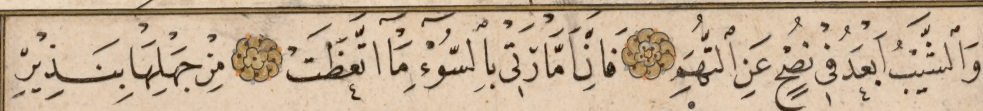 وَالشَّيْبُ اَبْعَدُ فِى نُصْحٍ عَنِ التُّهَمِ فَاِنَّ اَمَّارَتِى بِالسُّوٓءِ مَا اتَّعَظَتْ مِنْ جَهْلِهَا بِنَذِيْرِ